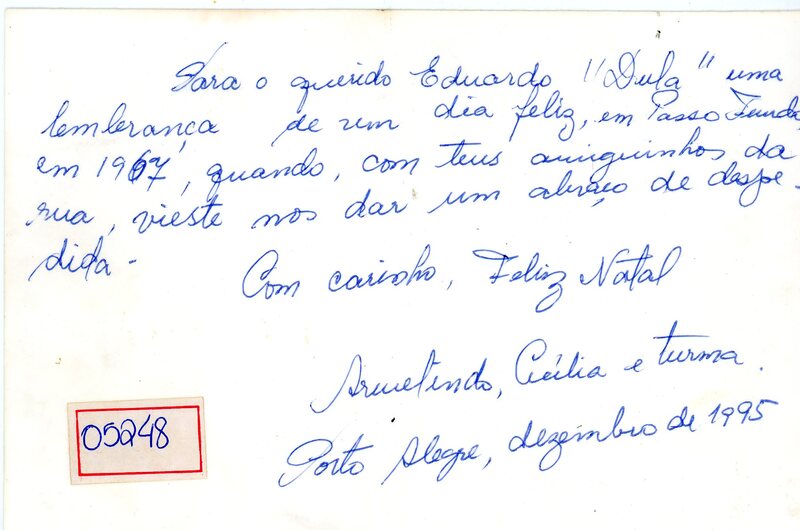 Para o querido Eduardo "Dula" uma
lembrança, de um dia feliz, em Passo Fundo,
em 1967, quando, com teus amiguinhos da
rua, vieste nos dar um abraço de despe-
dida -
Com carinho, Feliz Natal
Armelindo, Cecília e turma.
Porto Alegre, dezembro de 1995
05248